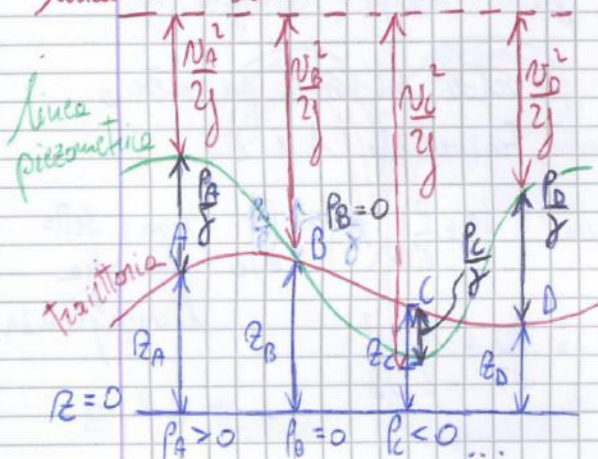 v_A² / 2g
v_B² / 2g
v_C² / 2g
v_D² / 2g
linea
piezometrica
P_A / γ
P_B = 0
P_D / γ
P_C / γ
A
B
C
D
traiettoria
z_A
z_B
z_C
z_D
z = 0
P_A > 0
P_B = 0
P_C < 0 ....